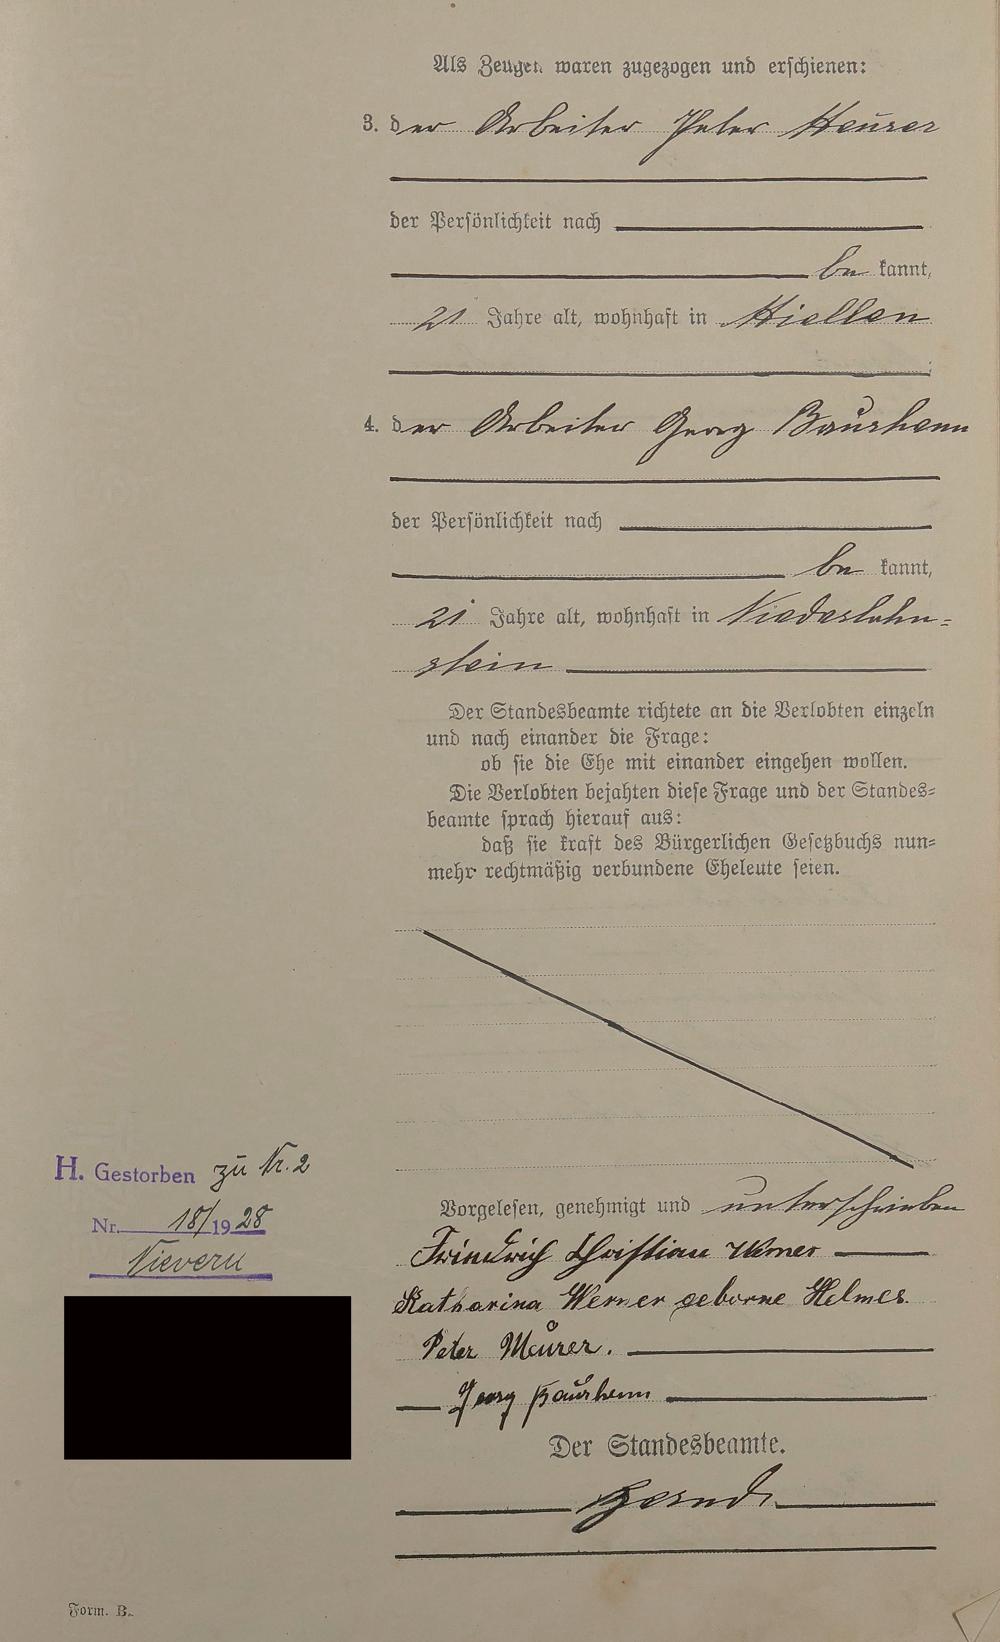 Als Zeugen waren zugezogen und erschienen:
3. der Arbeiter Peter Meurer
der Persönlichkeit nach
be kannt,
21 Jahre alt, wohnhaft in Miellen
4. der Arbeiter Georg Baurhenn
der Persönlichkeit nach
be kannt,
21 Jahre alt, wohnhaft in Niederlahn=
stein
Der Standesbeamte richtete an die Verlobten einzeln
und nach einander die Frage:
ob sie die Ehe mit einander eingehen wollen.
Die Verlobten bejahten diese Frage und der Standes=
beamte sprach hierauf aus:
daß sie kraft des Bürgerlichen Gesetzbuchs nun=
mehr rechtmäßig verbundene Eheleute seien.
H. Gestorben zu Nr. 2
Nr. 18/1928
Nievern
Vorgelesen, genehmigt und unterschrieben
Friedrich Christian Werner
Katharina Werner geborne Helmes.
Peter Meurer.
Georg Baurhenn
Der Standesbeamte.
Form. B.